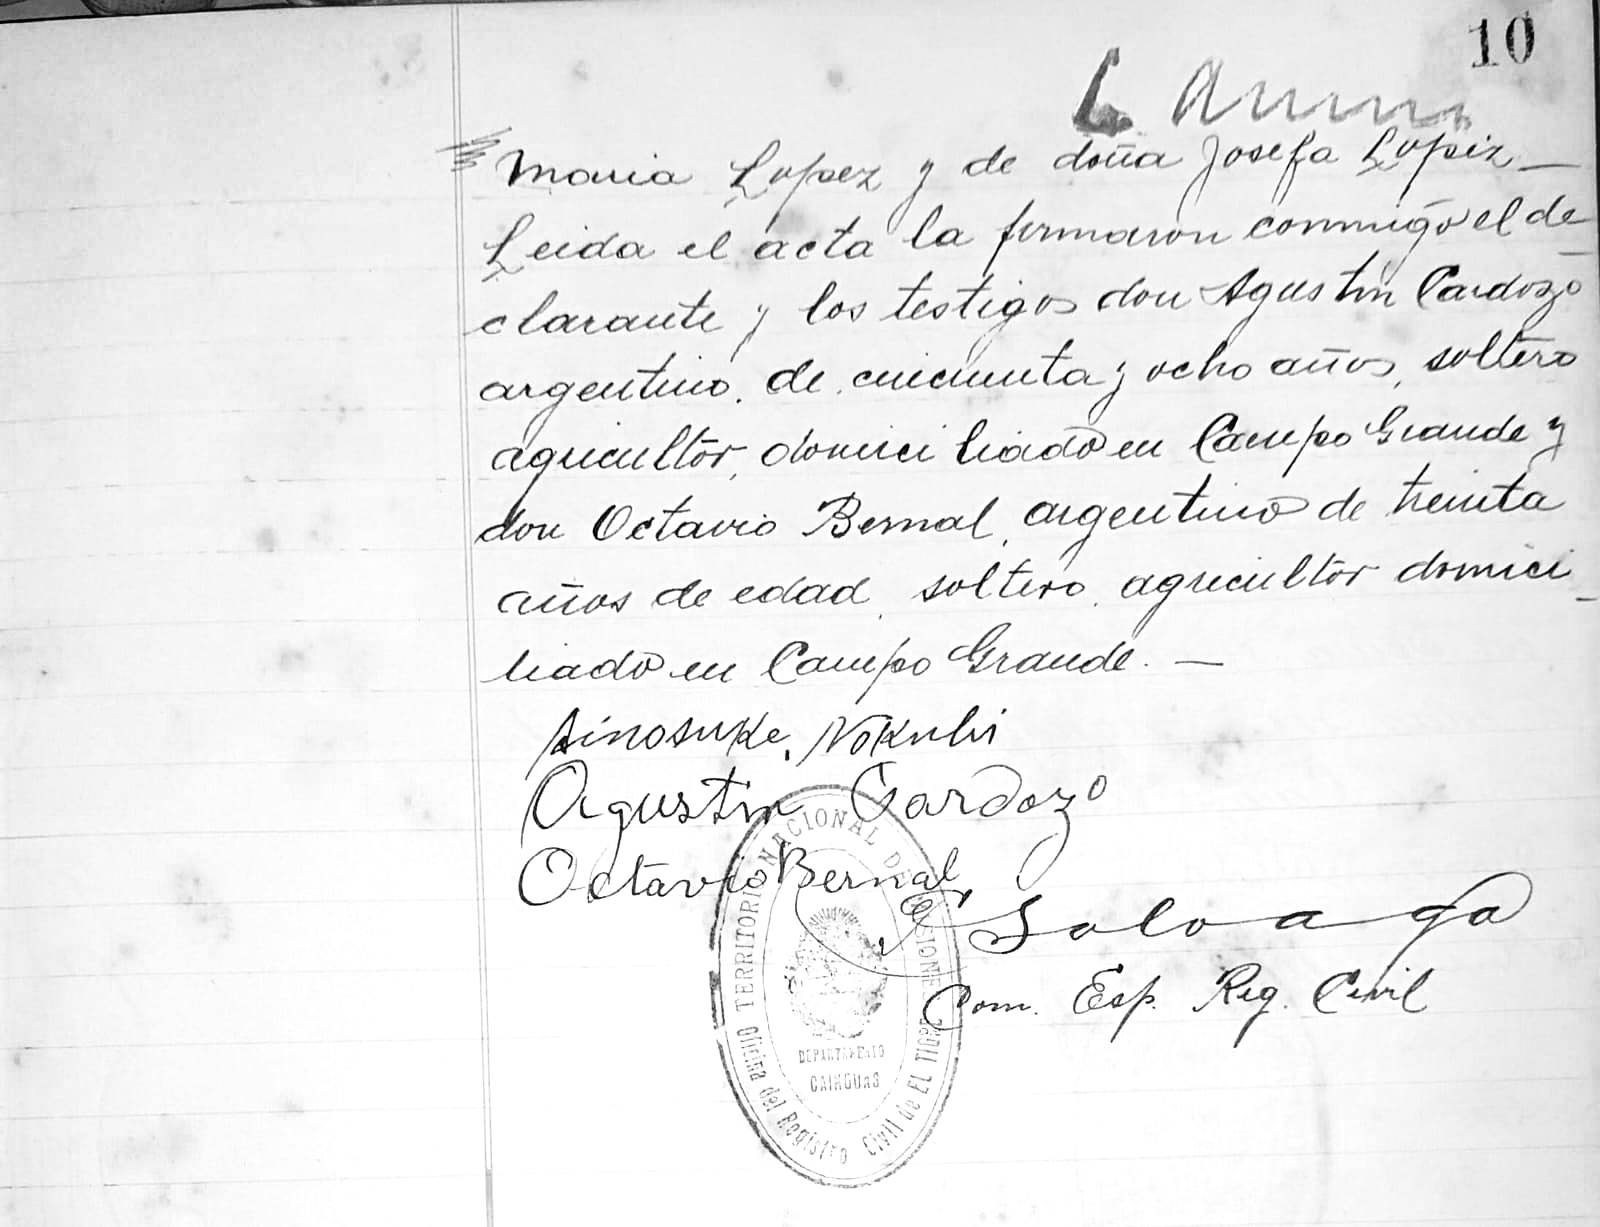 10
Maria Lopez y de doña Josefa Lopez—
Leida el acta la firmaron conmigo el de
clarante y los testigos don Agustin Cardozo
argentino, de cincuenta y ocho años, soltero
agricultor, domiciliado en Campo Grande y
don Octavio Bernal, argentino de treinta
años de edad, soltero, agricultor domici
liado en Campo Grande. —
Ainosuke. Nokuhi
Agustin Cardozo
Octavio Bernal
Soloaga
Com. Esp. Reg. Civil
TERRITORIO NACIONAL DE MISIONES
DEPARTAMENTO
CAINGUAS
Oficina del Registro Civil de EL TIGRE